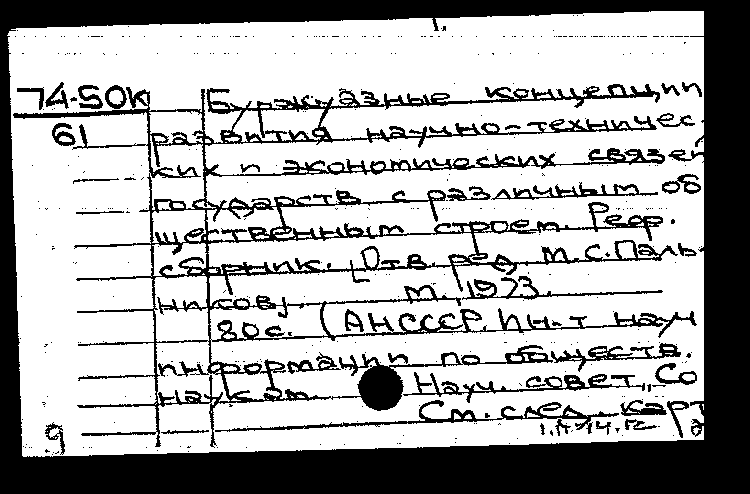 1.
74-50К Буржуазные концепции
61 развития научно-техничес-
ких и экономических связей
государств с различным об
щественным строем. Реф.
сборник. [Отв. ред. М.С. Паль-
ников]. М., 1973.
80 с. (АН СССР. Ин-т науч
информации по обществ.
наукам. Науч. совет „Со
См. след. карт
9